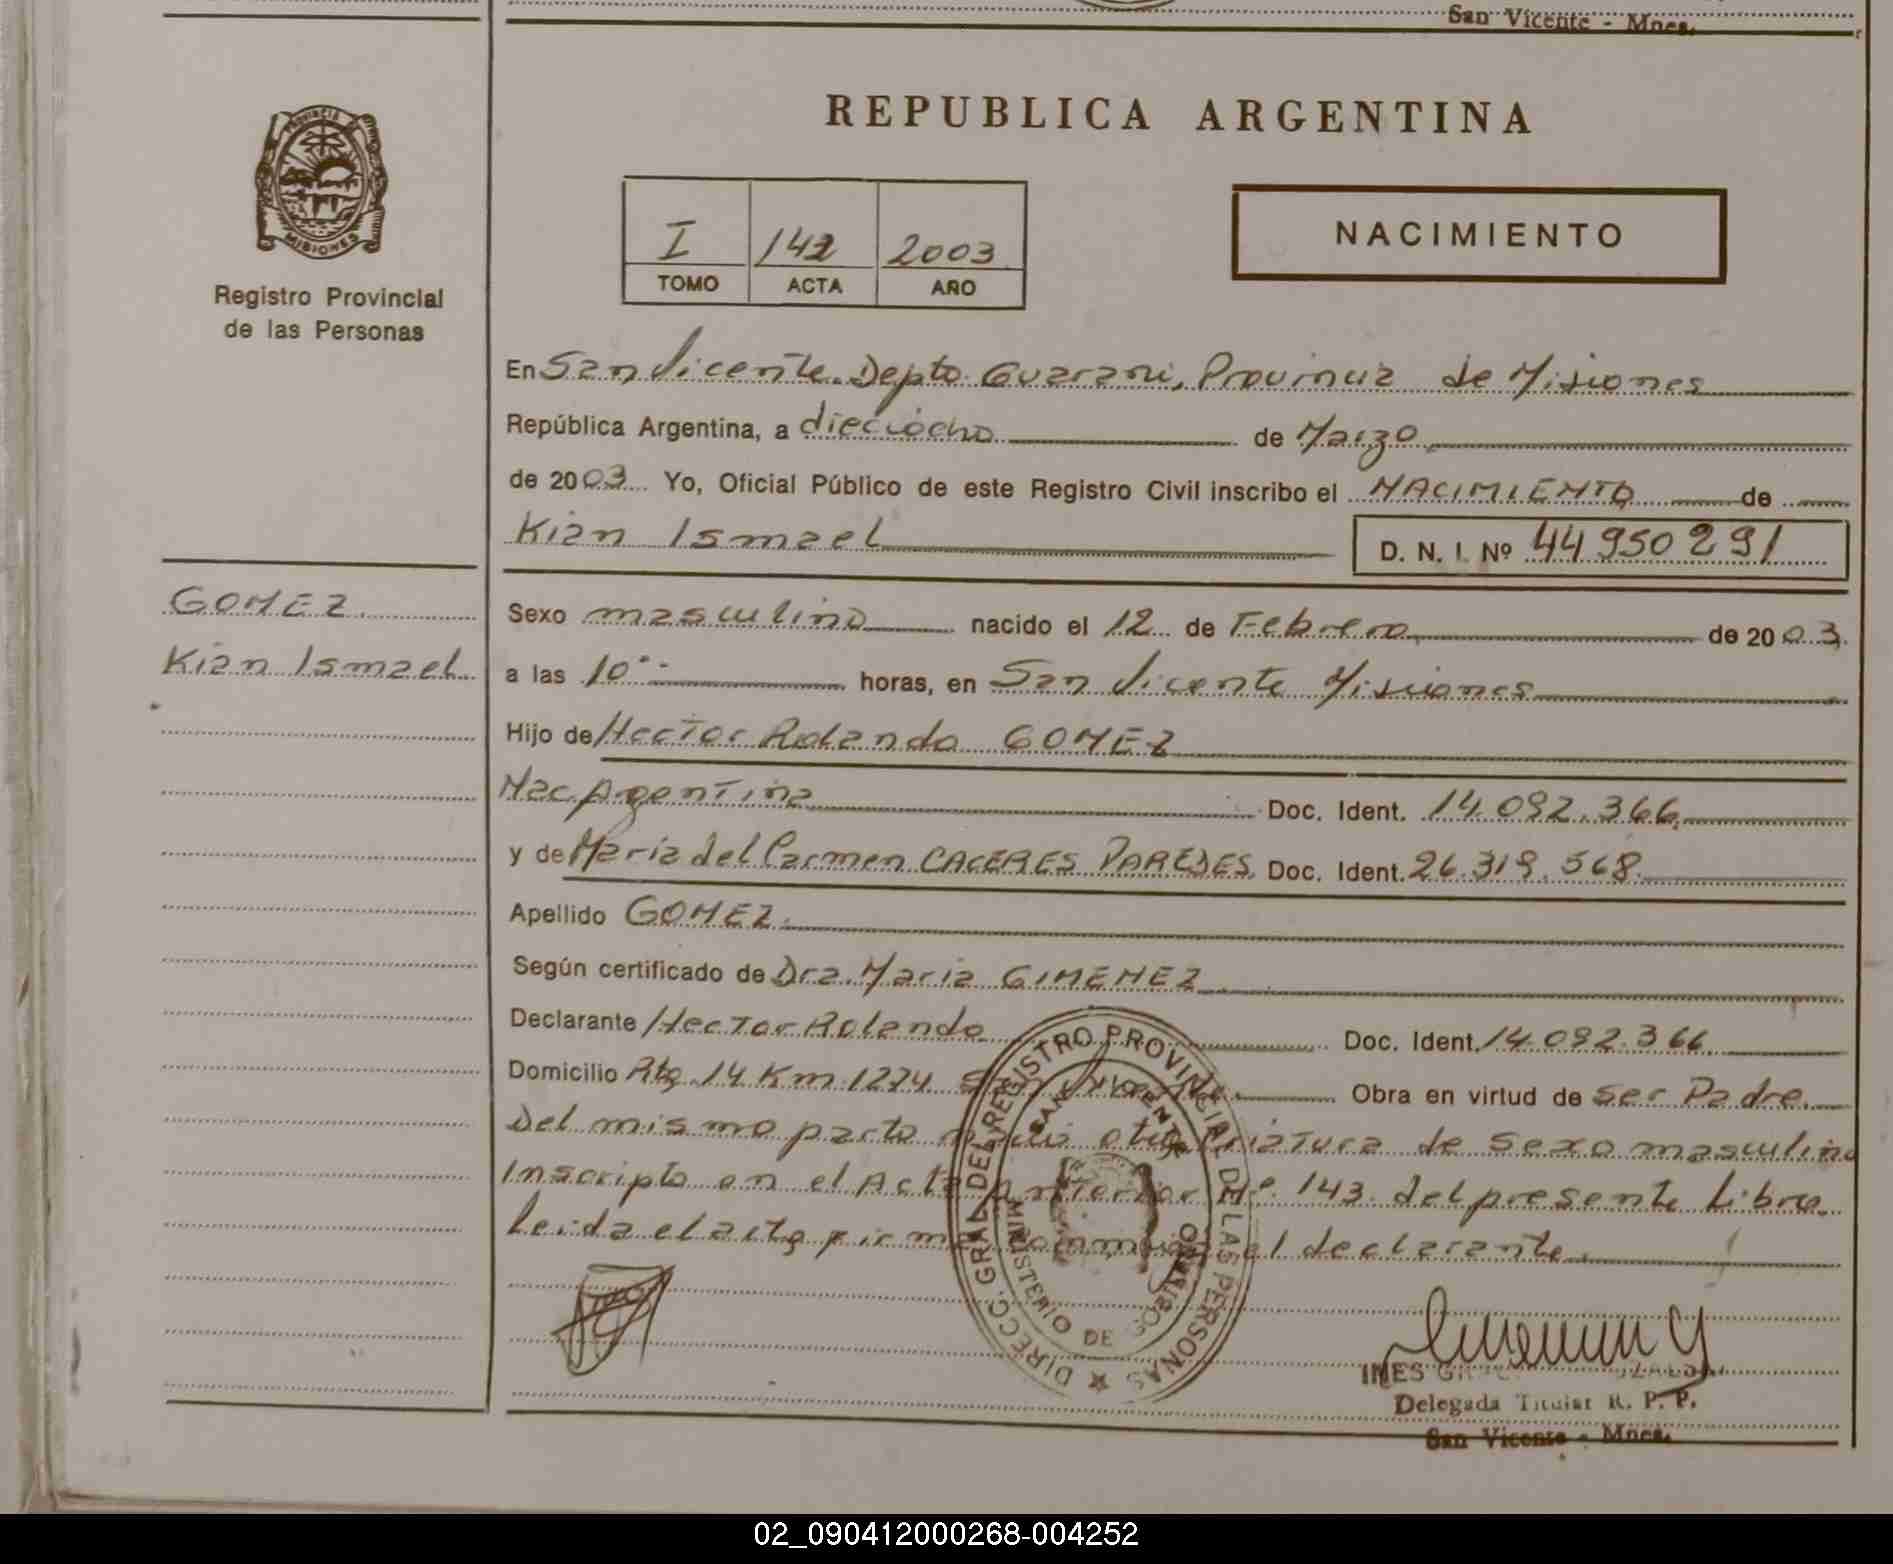 San Vicente - Mnes.
REPUBLICA ARGENTINA
PROVINCIA DE
MISIONES
Registro Provincial
de las Personas
I 142 2003
TOMO ACTA AÑO
NACIMIENTO
En San Vicente. Depto Guarani, Provincia de Misiones
República Argentina, a dieciocho de Marzo
de 2003 Yo, Oficial Público de este Registro Civil inscribo el NACIMIENTO de
Kian Ismael
D. N. I. Nº 44950291
GOMEZ
Kian Ismael
Sexo masculino nacido el 12 de Febrero de 2003.
a las 10 horas, en San Vicente Misiones
Hijo de Hector Rolando GOMEZ
Nac. Argentina Doc. Ident. 14.092.366
y de Maria del Carmen CACERES PAREDES Doc. Ident. 26.319.568
Apellido GOMEZ
Según certificado de Dra. Maria GIMENEZ
Declarante Hector Rolando Doc. Ident. 14.092.366
Domicilio Rta. 14 Km 1274 San Vicente Obra en virtud de ser Padre.
Del mismo parto nacio otra criatura de sexo masculino
Inscripto en el Acta anterior Nº 143 del presente Libro.
Leida el acta firma conmigo el declarante
DIRECC. GRAL. DEL REGISTRO PROVINCIAL DE LAS PERSONAS
SAN VICENTE
MINISTERIO DE GOBIERNO
INES
Delegada Titular R. P. P.
San Vicente - Mnes.
02_090412000268-004252